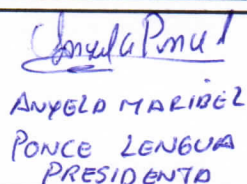 Anyela Ponce L
ANYELA MARIBEL
PONCE LENGUA
PRESIDENTA